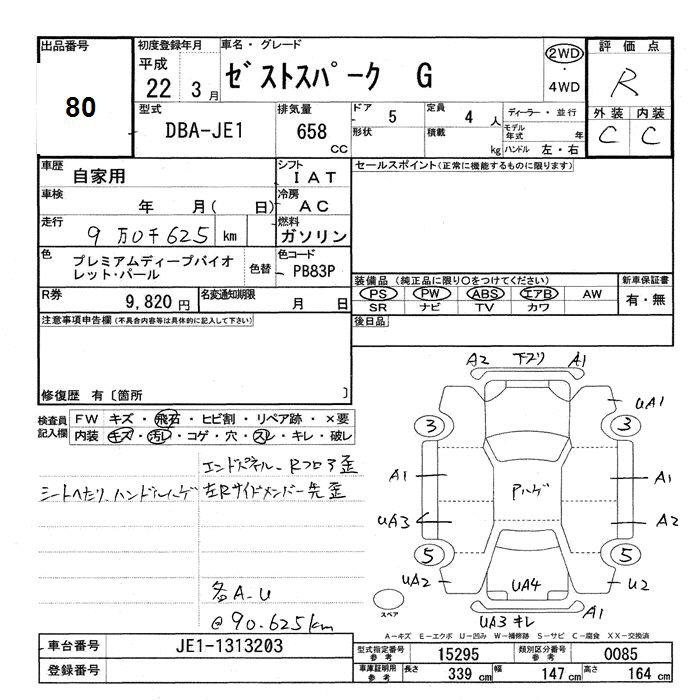 出品番号
80
初度登録年月
平成
22 3月
車名・グレード
ゼストスパーク G
2WD
・
4WD
評価点
R
外装 内装
C C
型式
DBA-JE1
排気量
658
CC
ドア
5
定員
4 人
形状
積載
kg
ディーラー・並行
モデル
年式
年
ハンドル 左・右
車歴
自家用
シフト
IAT
車検
年 月( 日)
冷房
AC
走行
9万0千625 km
燃料
ガソリン
色
プレミアムディープバイオ
レット・パール
色替
色コード
PB83P
R券
9,820 円
名変通知期限
月 日
セールスポイント(正常に機能するものに限ります)
装備品 (純正品に限り○をつけてください)
PS PW ABS エアB AW
SR ナビ TV カワ
新車保証書
有・無
後日品
注意事項申告欄(不具合内容等は具体的に記入して下さい)
修復歴 有〔箇所 〕
検査員
記入欄
FW キズ・飛石・ヒビ割・リペア跡・×要
内装 キズ・汚レ・コゲ・穴・スレ・キレ・破レ
エンドパネル-Rフロア歪
シートへたり ハンドルハゲ
左Rサイドメンバー先歪
各A-U
@90.625km
A2 下スリ A1
UA1
3 3
A1 A1
Pハゲ
UA3 A2
5 5
UA2 U2
UA4
UA3 キレ A1
スペア
A－キズ E－エクボ U－凹み W－補修跡 S－サビ C－腐食 XX－交換済
車台番号
JE1-1313203
登録番号
型式指定番号
参考
15295
類別区分番号
参考
0085
車庫証明用
参考
長さ
339 cm
幅
147 cm
高さ
164 cm